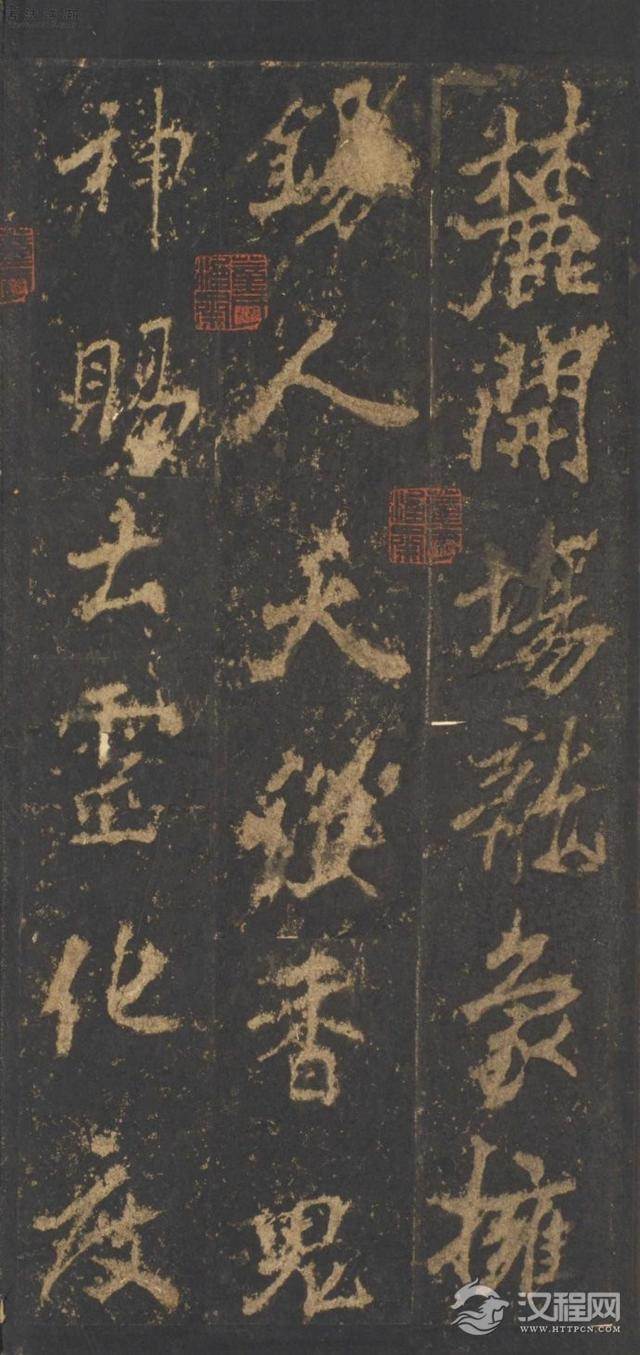 麓開場龍象擁
錫人天香鬼
神賜土靈化度
汉程网
WWW.HTTPCN.COM